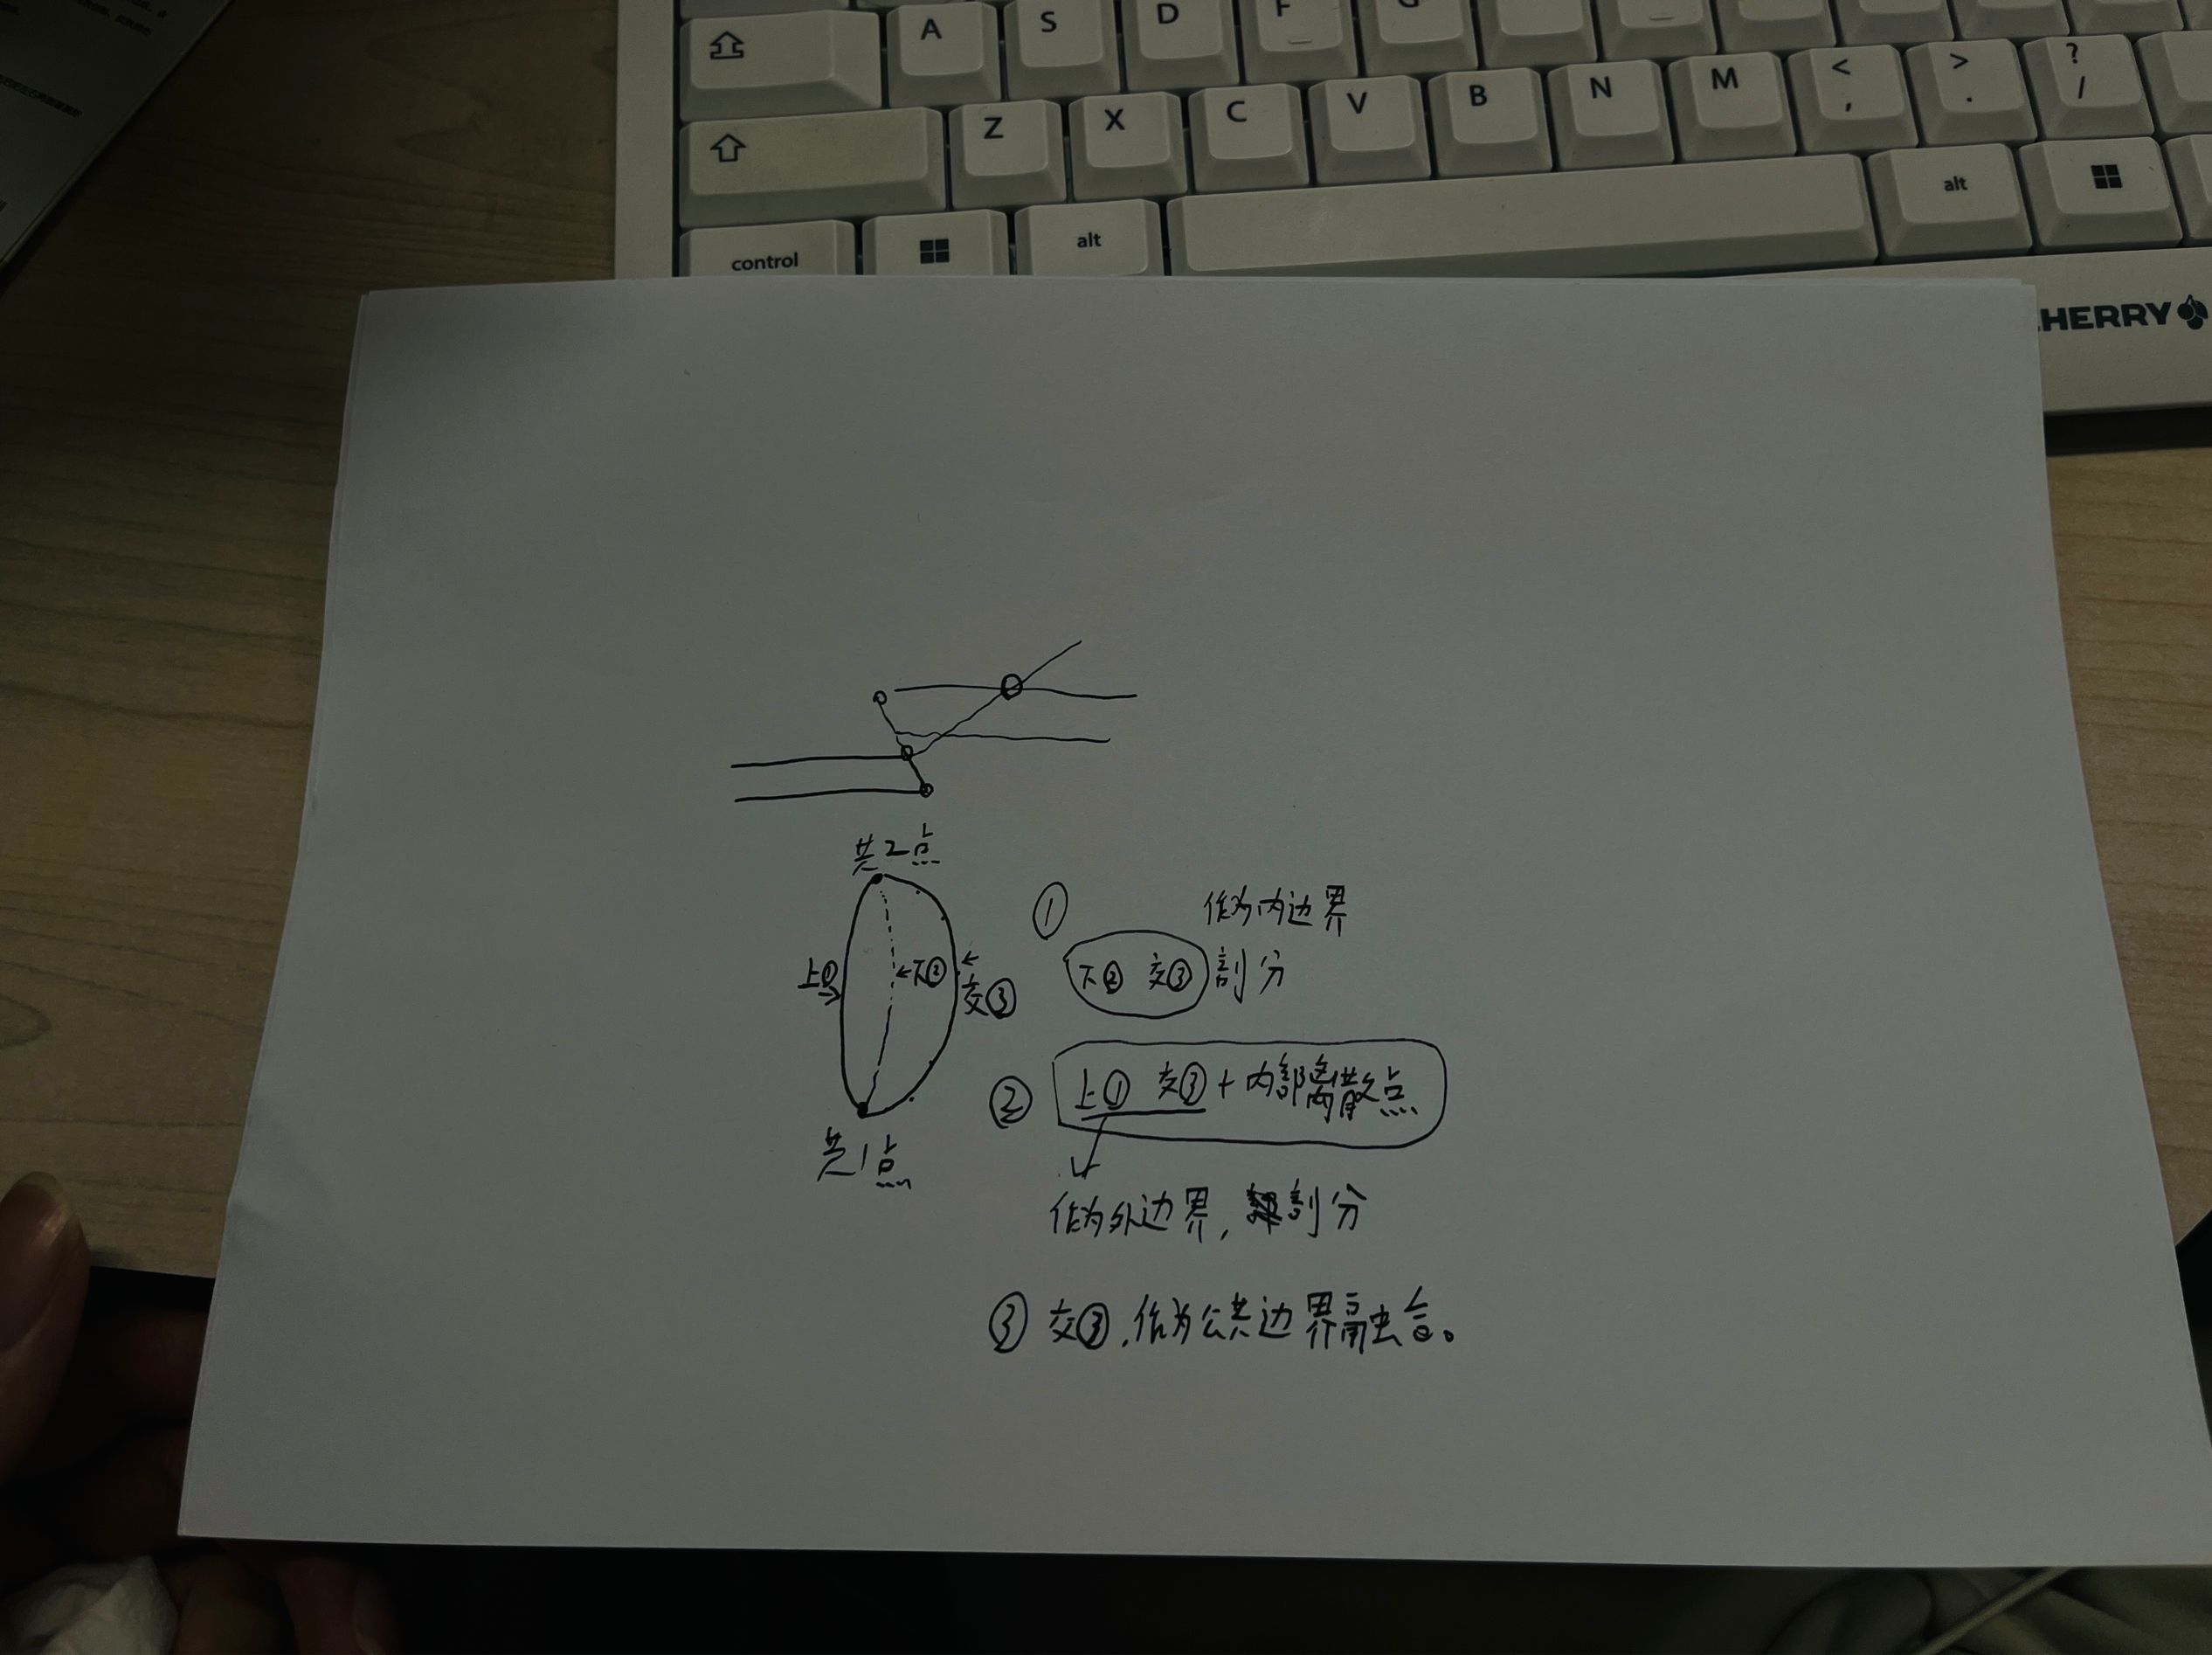 A S D F G
Z X C V B N M < , > . ? /
control alt alt
CHERRY
共2点
上①
下②
交③
共1点
① 作为内边界
下② 交③ 剖分
② 上① 交③ + 内部离散点
作为外边界, 剖分
③ 交③,作为公共边界融合。